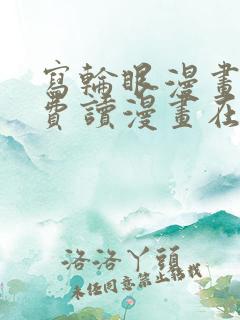 寫輪眼漫畫
費讀漫畫在
洛洛丫頭
未经同意禁止转载